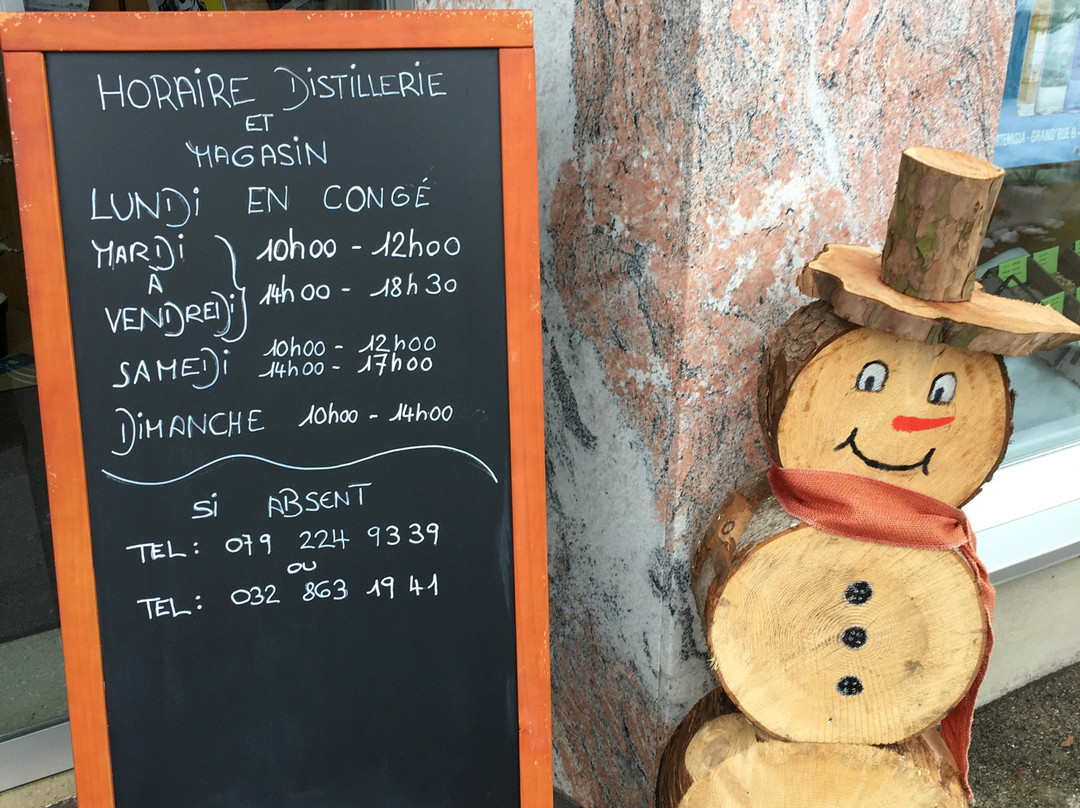 HORAIRE DISTILLERIE
ET
MAGASIN
LUNDI EN CONGÉ
MARDI 10h00 - 12h00
À
VENDREDI 14h00 - 18h30
SAMEDI 10h00 - 12h00
14h00 - 17h00
DIMANCHE 10h00 - 14h00
SI ABSENT
TEL: 079 224 93 39
OU
TEL: 032 863 19 41
GRAND'RUE